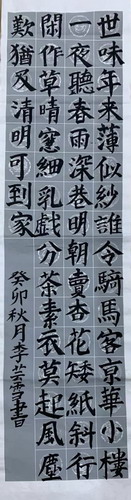 世味年来薄似紗誰令騎馬客京華小樓
一夜聽春雨深巷明朝賣杏花矮紙斜行
閑作草晴窻細乳戲分茶素衣莫起風塵
歎猶及清明可到家
癸卯秋月李書